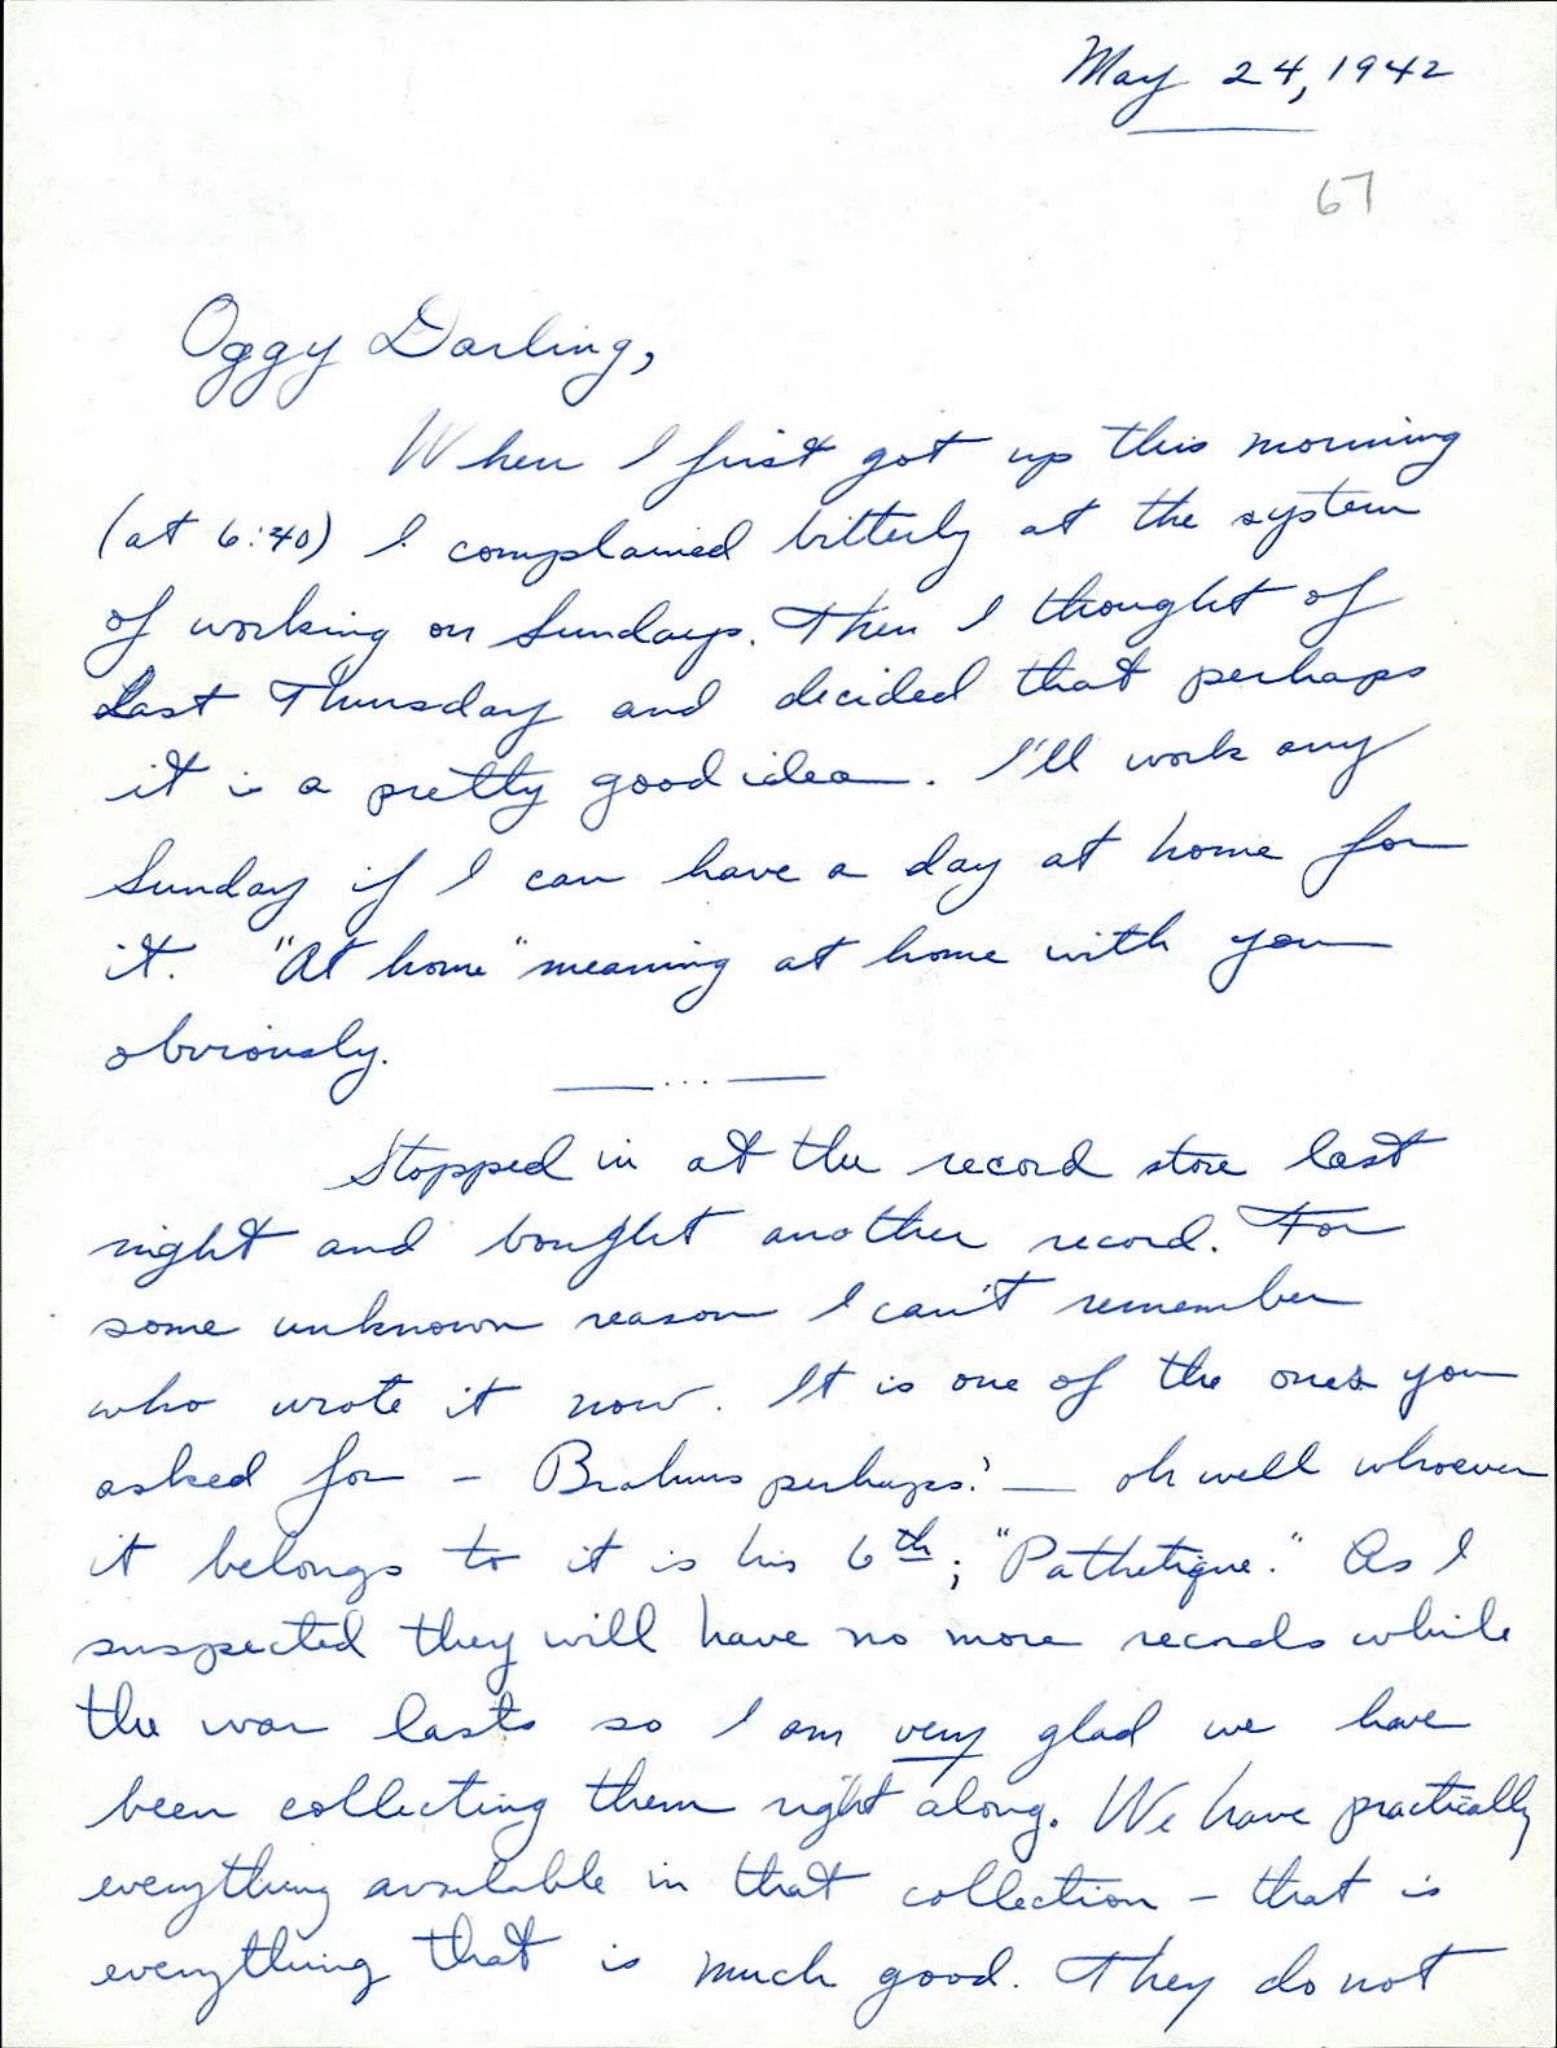 May 24, 1942
67
Oggy Darling,
When I first got up this morning
(at 6:40) I complained bitterly at the system
of working on Sundays. Then I thought of
Last Thursday and decided that perhaps
it is a pretty good idea. I'll work any
Sunday if I can have a day at home for
it. "At home" meaning at home with you
obviously.
— ... —
Stopped in at the record store last
night and bought another record. For
some unknown reason I can't remember
who wrote it now. It is one of the ones you
asked for – Brahms perhaps? — oh well whoever
it belongs to it is his 6th; "Pathetique." As I
suspected they will have no more records while
the war lasts so I am very glad we have
been collecting them right along. We have practically
everything available in that collection – that is
everything that is much good. They do not